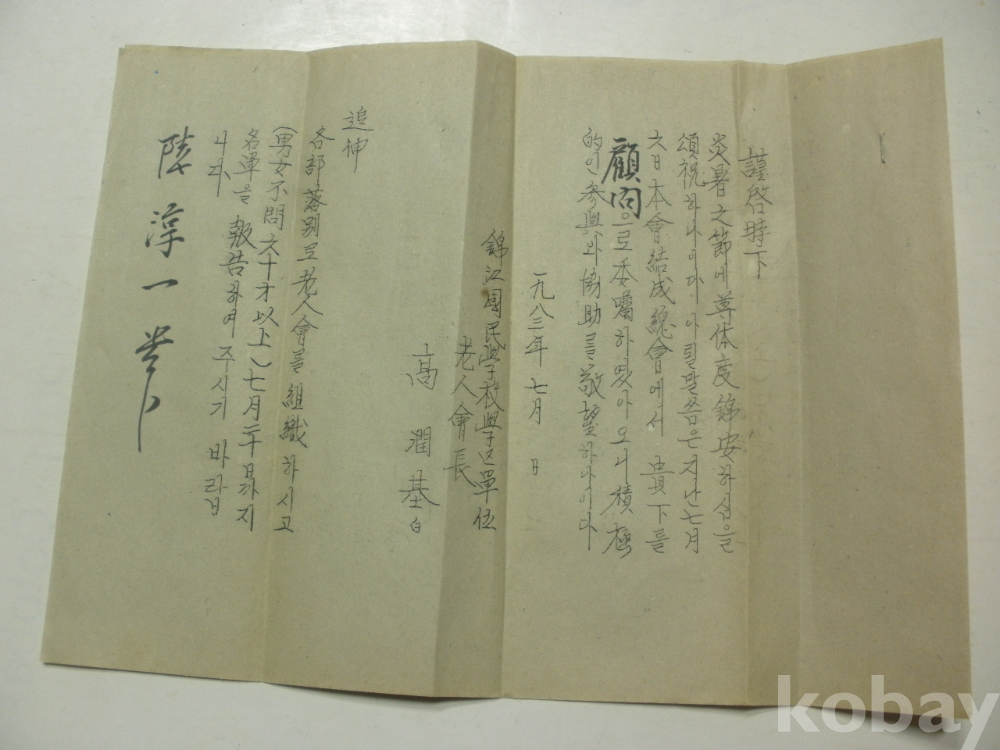 謹啓時下
炎暑之節에 尊体度錦安하심을
頌祝하나이다 아뢸말씀은 지난七月
六日本會結成總會에서 貴下를
顧問으로 委囑하였아오니 積極
的인 參與와 協助를 敬望하나이다
一九八三年 七月 日
錦江國民學校學區單位
老人會長
高潤基 白
追伸
各部落別로 老人會를 組織하시고
(男女不問 六十才以上) 七月二十日까지
名單을 報告하여 주시기 바랍
니다
陸淳一
kobay